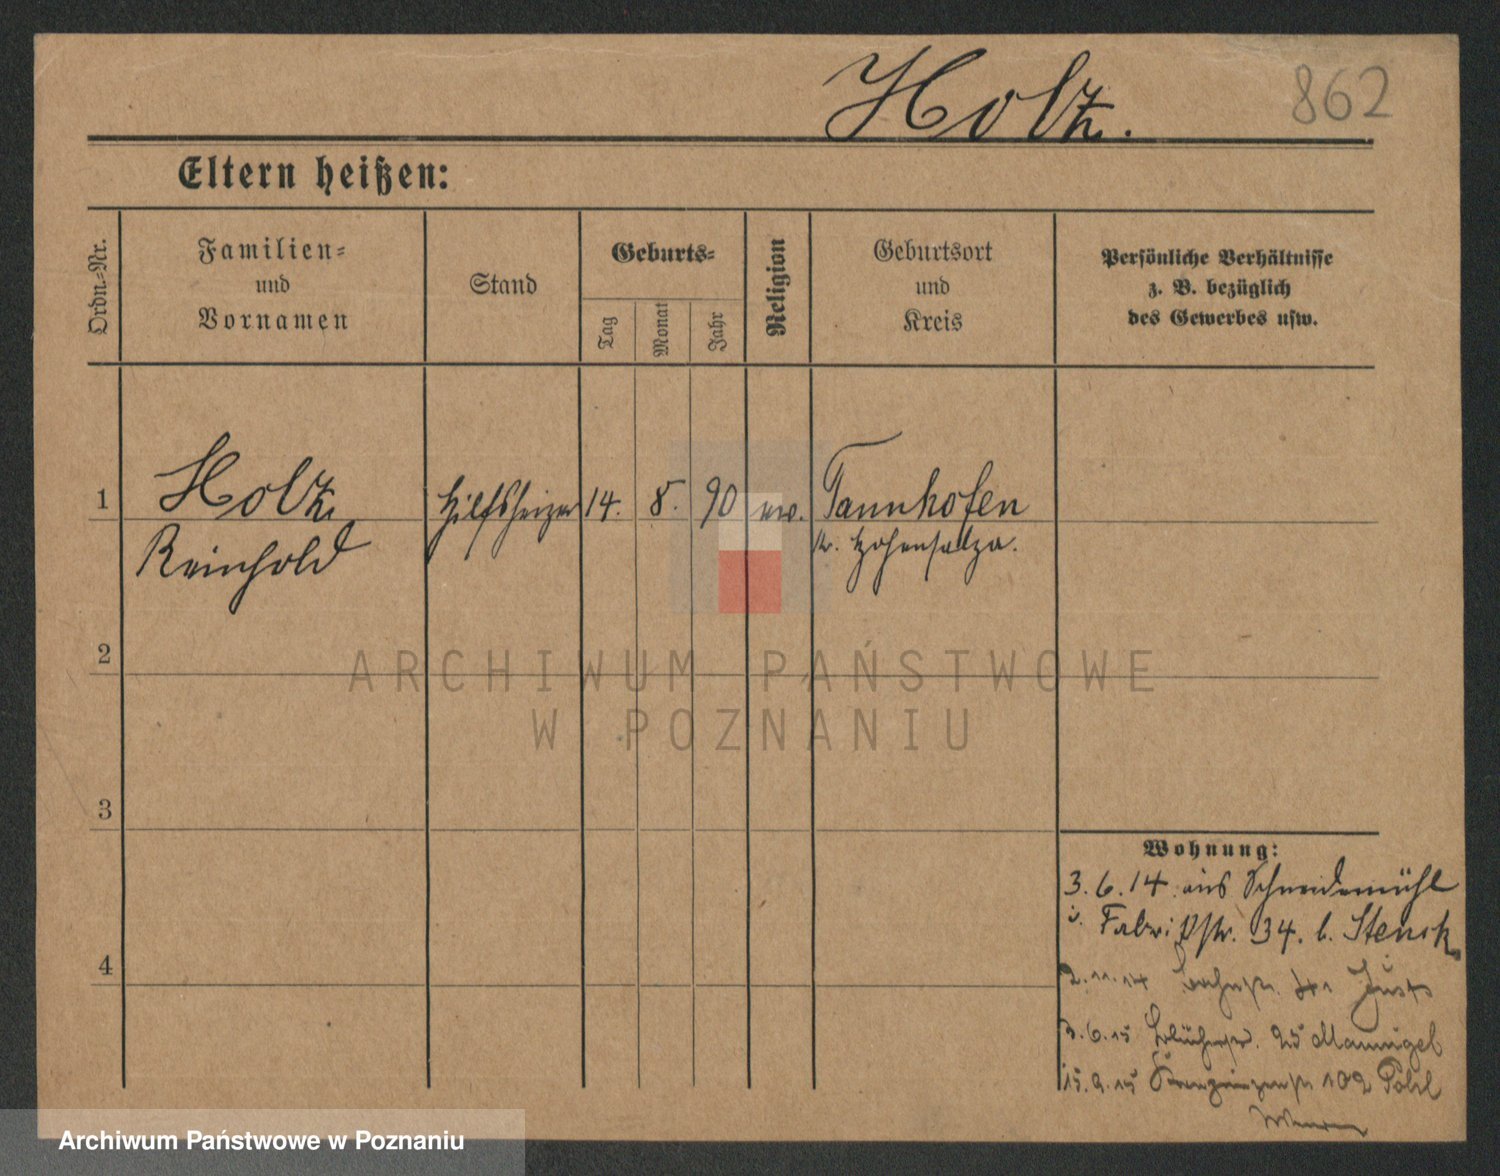 Holz.
862
Eltern heißen:
Ordn.-Nr.
Familien-
und
Vornamen
Stand
Geburts-
Tag
Monat
Jahr
Religion
Geburtsort
und
Kreis
Persönliche Verhältnisse
z. B. bezüglich
des Gewerbes usw.
1
Holz
Reinhold
Hilfsheizer
14.
8.
90
ew.
Tannhofen
Kr. Hohensalza.
2
ARCHIWUM PAŃSTWOWE
W POZNANIU
3
4
Wohnung:
3.6.14. aus Schneidemühl
Fabrikstr. 34. b. Stenck
2.11.14
3.6.15 Blücherstr. 25 Mannigel
15.9.15 102
Archiwum Państwowe w Poznaniu